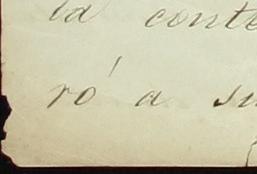 ta conte
ró a su